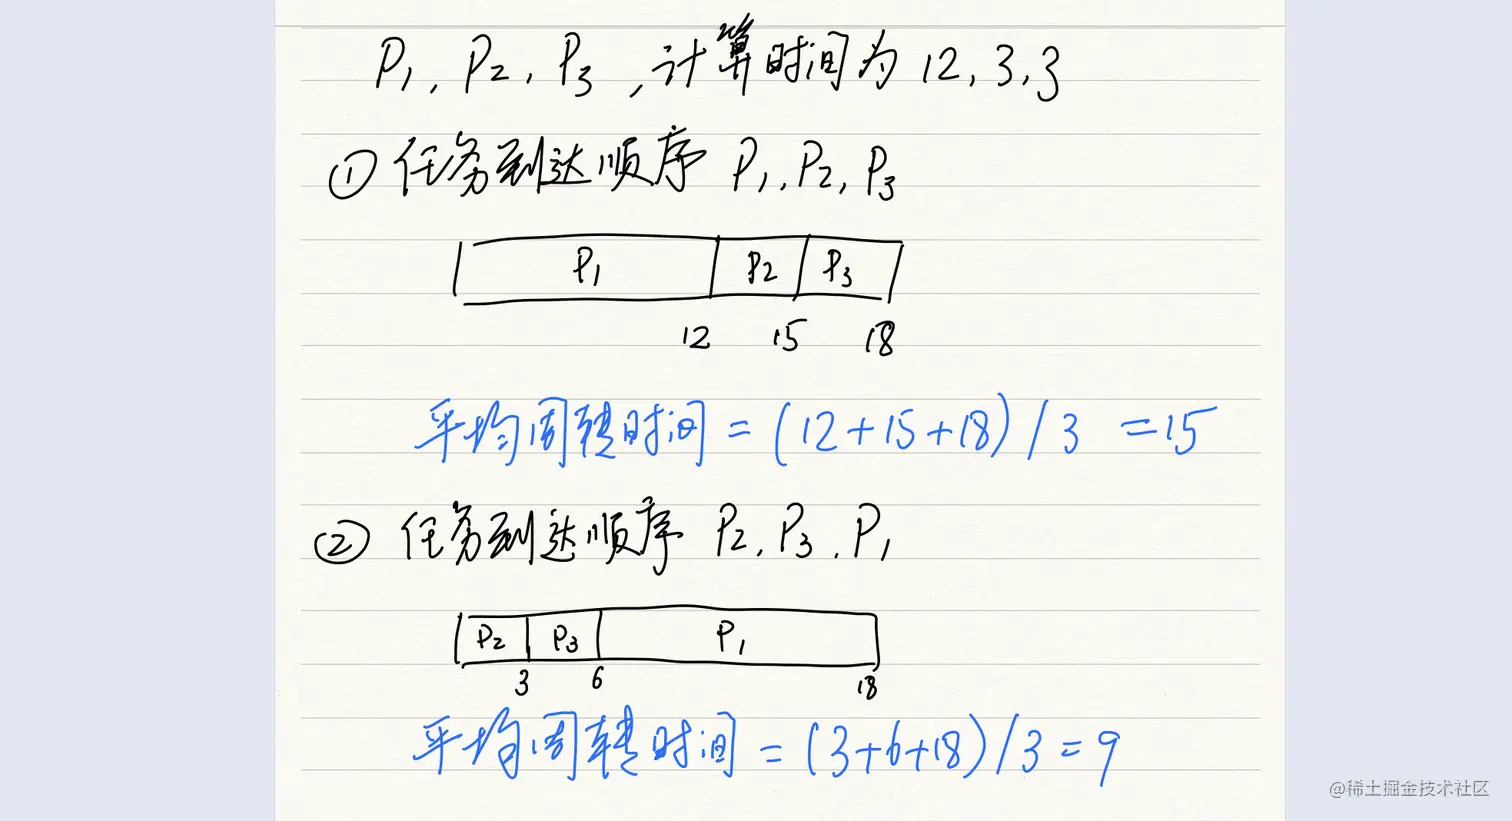 P1, P2, P3, 计算时间为 12, 3, 3
① 任务到达顺序 P1, P2, P3
P1 P2 P3
12 15 18
平均周转时间 = (12+15+18) / 3 = 15
② 任务到达顺序 P2, P3, P1
P2 P3 P1
3 6 18
平均周转时间 = (3+6+18) / 3 = 9
@稀土掘金技术社区